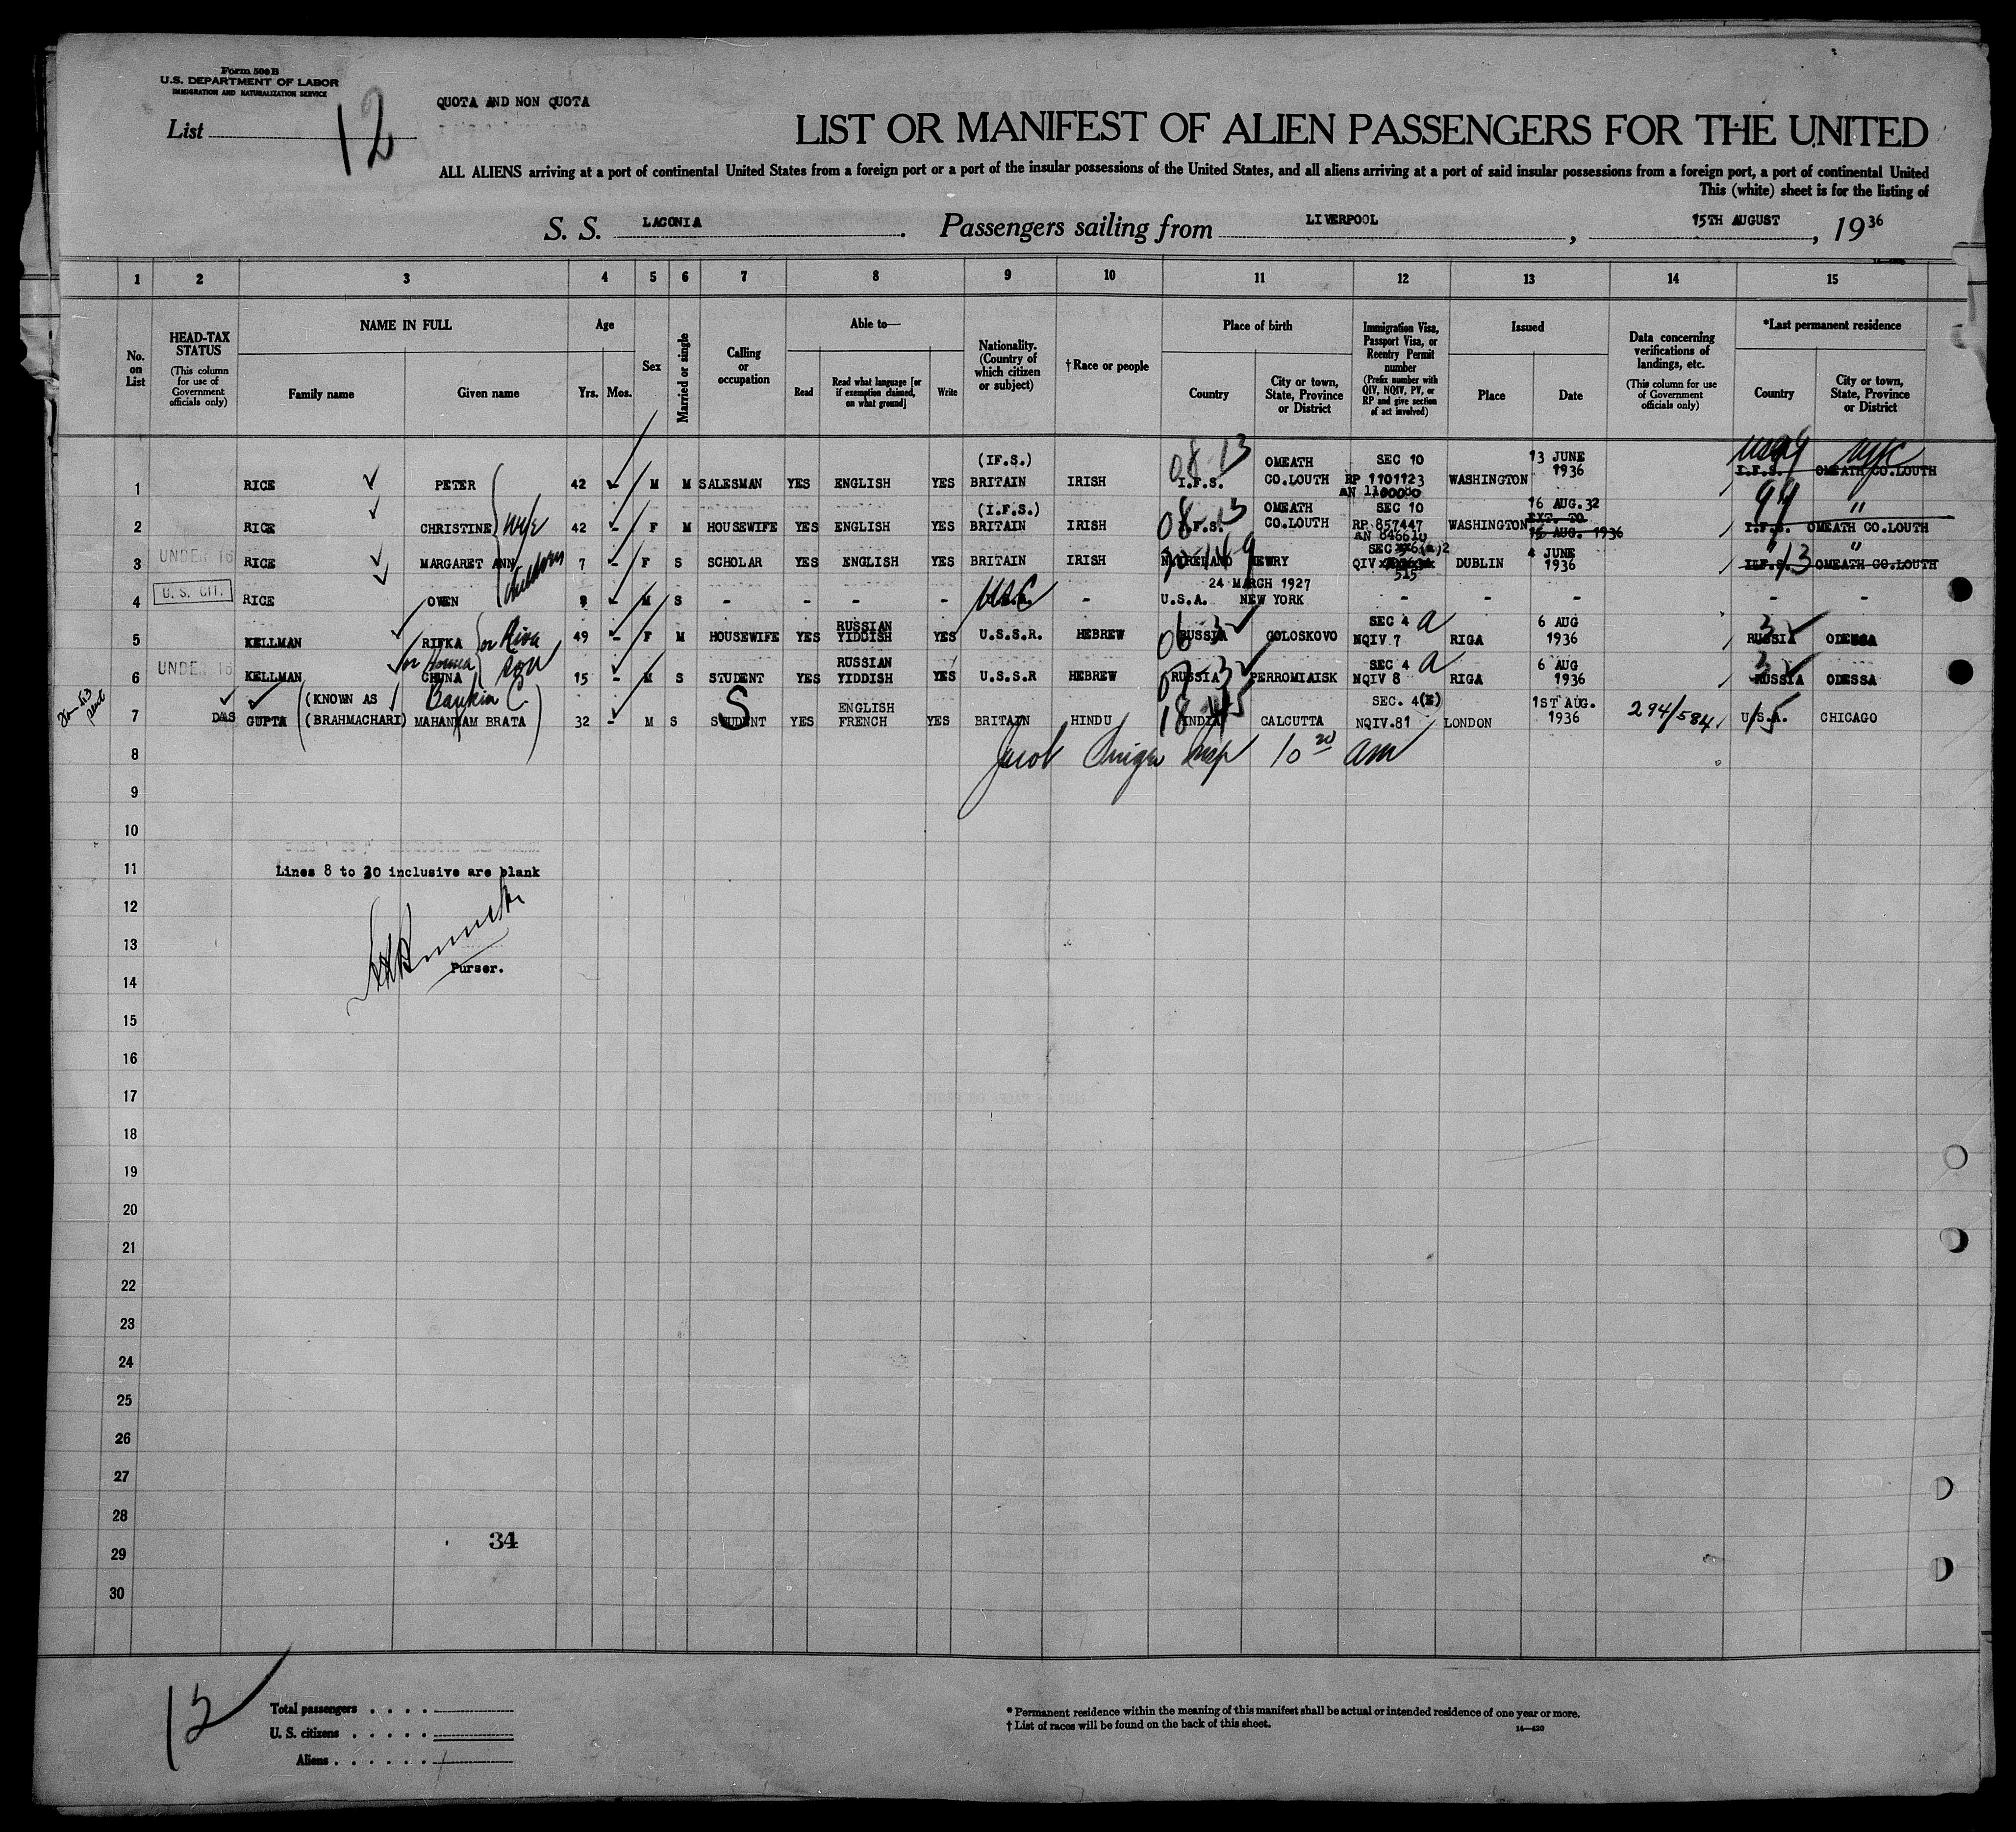 Form 500 B
U.S. DEPARTMENT OF LABOR
IMMIGRATION AND NATURALIZATION SERVICE
List 12
QUOTA AND NON QUOTA
LIST OR MANIFEST OF ALIEN PASSENGERS FOR THE UNITED
ALL ALIENS arriving at a port of continental United States from a foreign port or a port of the insular possessions of the United States, and all aliens arriving at a port of said insular possessions from a foreign port, a port of continental United
This (white) sheet is for the listing of
S. S. LACONIA. Passengers sailing from LIVERPOOL, 15TH AUGUST, 1936
1 2 3 4 5 6 7 8 9 10 11 12 13 14 15
No. on List
HEAD-TAX STATUS
(This column for use of Government officials only)
NAME IN FULL
Family name Given name
Age
Yrs. Mos.
Sex
Married or single
Calling or occupation
Able to—
Read
Read what language [or if exemption claimed, on what ground]
Write
Nationality. (Country of which citizen or subject)
†Race or people
Place of birth
Country
City or town, State, Province or District
Immigration Visa, Passport Visa, or Reentry Permit number
(Prefix number with QIV, NQIV, PV, or RP and give section of act involved)
Issued
Place Date
Data concerning verifications of landings, etc.
(This column for use of Government officials only)
*Last permanent residence
Country
City or town, State, Province or District
(IF.S.) 08 13 OMEATH SEC 10 13 JUNE NYC
1 RICE PETER 42 - M M SALESMAN YES ENGLISH YES BRITAIN IRISH I.F.S. CO.LOUTH RP 1101123 WASHINGTON 1936 I.F.S. OMEATH CO.LOUTH
AN 1100080
(I.F.S.) 08 13 OMEATH SEC 10 16 AUG.32 99 "
2 RICE CHRISTINE wife 42 - F M HOUSEWIFE YES ENGLISH YES BRITAIN IRISH I.F.S. CO.LOUTH RP 857447 WASHINGTON EXT. TO 16 AUG. 1936 I.F.S. OMEATH CO.LOUTH
AN 846610
UNDER 16 SEC 6(a)2 4 JUNE "
3 RICE MARGARET ANN children 7 - F S SCHOLAR YES ENGLISH YES BRITAIN IRISH N.IRELAND NEWRY QIV 525 DUBLIN 1936 I.F.S. 13 OMEATH CO.LOUTH
U. S. CIT. 24 MARCH 1927
4 RICE OWEN 9 - M S - - - - USC U.S.A. - U.S.A. NEW YORK - - - - -
RUSSIAN 06 32 SEC 4 a 6 AUG 32
5 KELLMAN RIFKA or Riva 49 - F M HOUSEWIFE YES YIDDISH YES U.S.S.R. HEBREW RUSSIA GOLOSKOVO NQIV 7 RIGA 1936 RUSSIA ODESSA
UNDER 16 son RUSSIAN 07 32 SEC 4 a 6 AUG 32
6 KELLMAN CHUNA 15 - M S STUDENT YES YIDDISH YES U.S.S.R HEBREW RUSSIA PERROMIAISK NQIV 8 RIGA 1936 RUSSIA ODESSA
(KNOWN AS Bankin C. S ENGLISH 18 45 SEC. 4(E) 1ST AUG.
7 DAS GUPTA (BRAHMACHARI) MAHANAM BRATA 32 - M S STUDENT YES FRENCH YES BRITAIN HINDU INDIA CALCUTTA NQIV.81 LONDON 1936 294/584 U.S.A. 15 CHICAGO
8 Jacob Insp 10 20 am
9
10
11 Lines 8 to 30 inclusive are blank
12
13
Purser.
14
15
16
17
18
19
20
21
22
23
24
25
26
27
28
34
29
30
12
Total passengers . . . .
U. S. citizens . . . . .
Aliens . . . . . .
* Permanent residence within the meaning of this manifest shall be actual or intended residence of one year or more.
† List of races will be found on the back of this sheet.
14—420